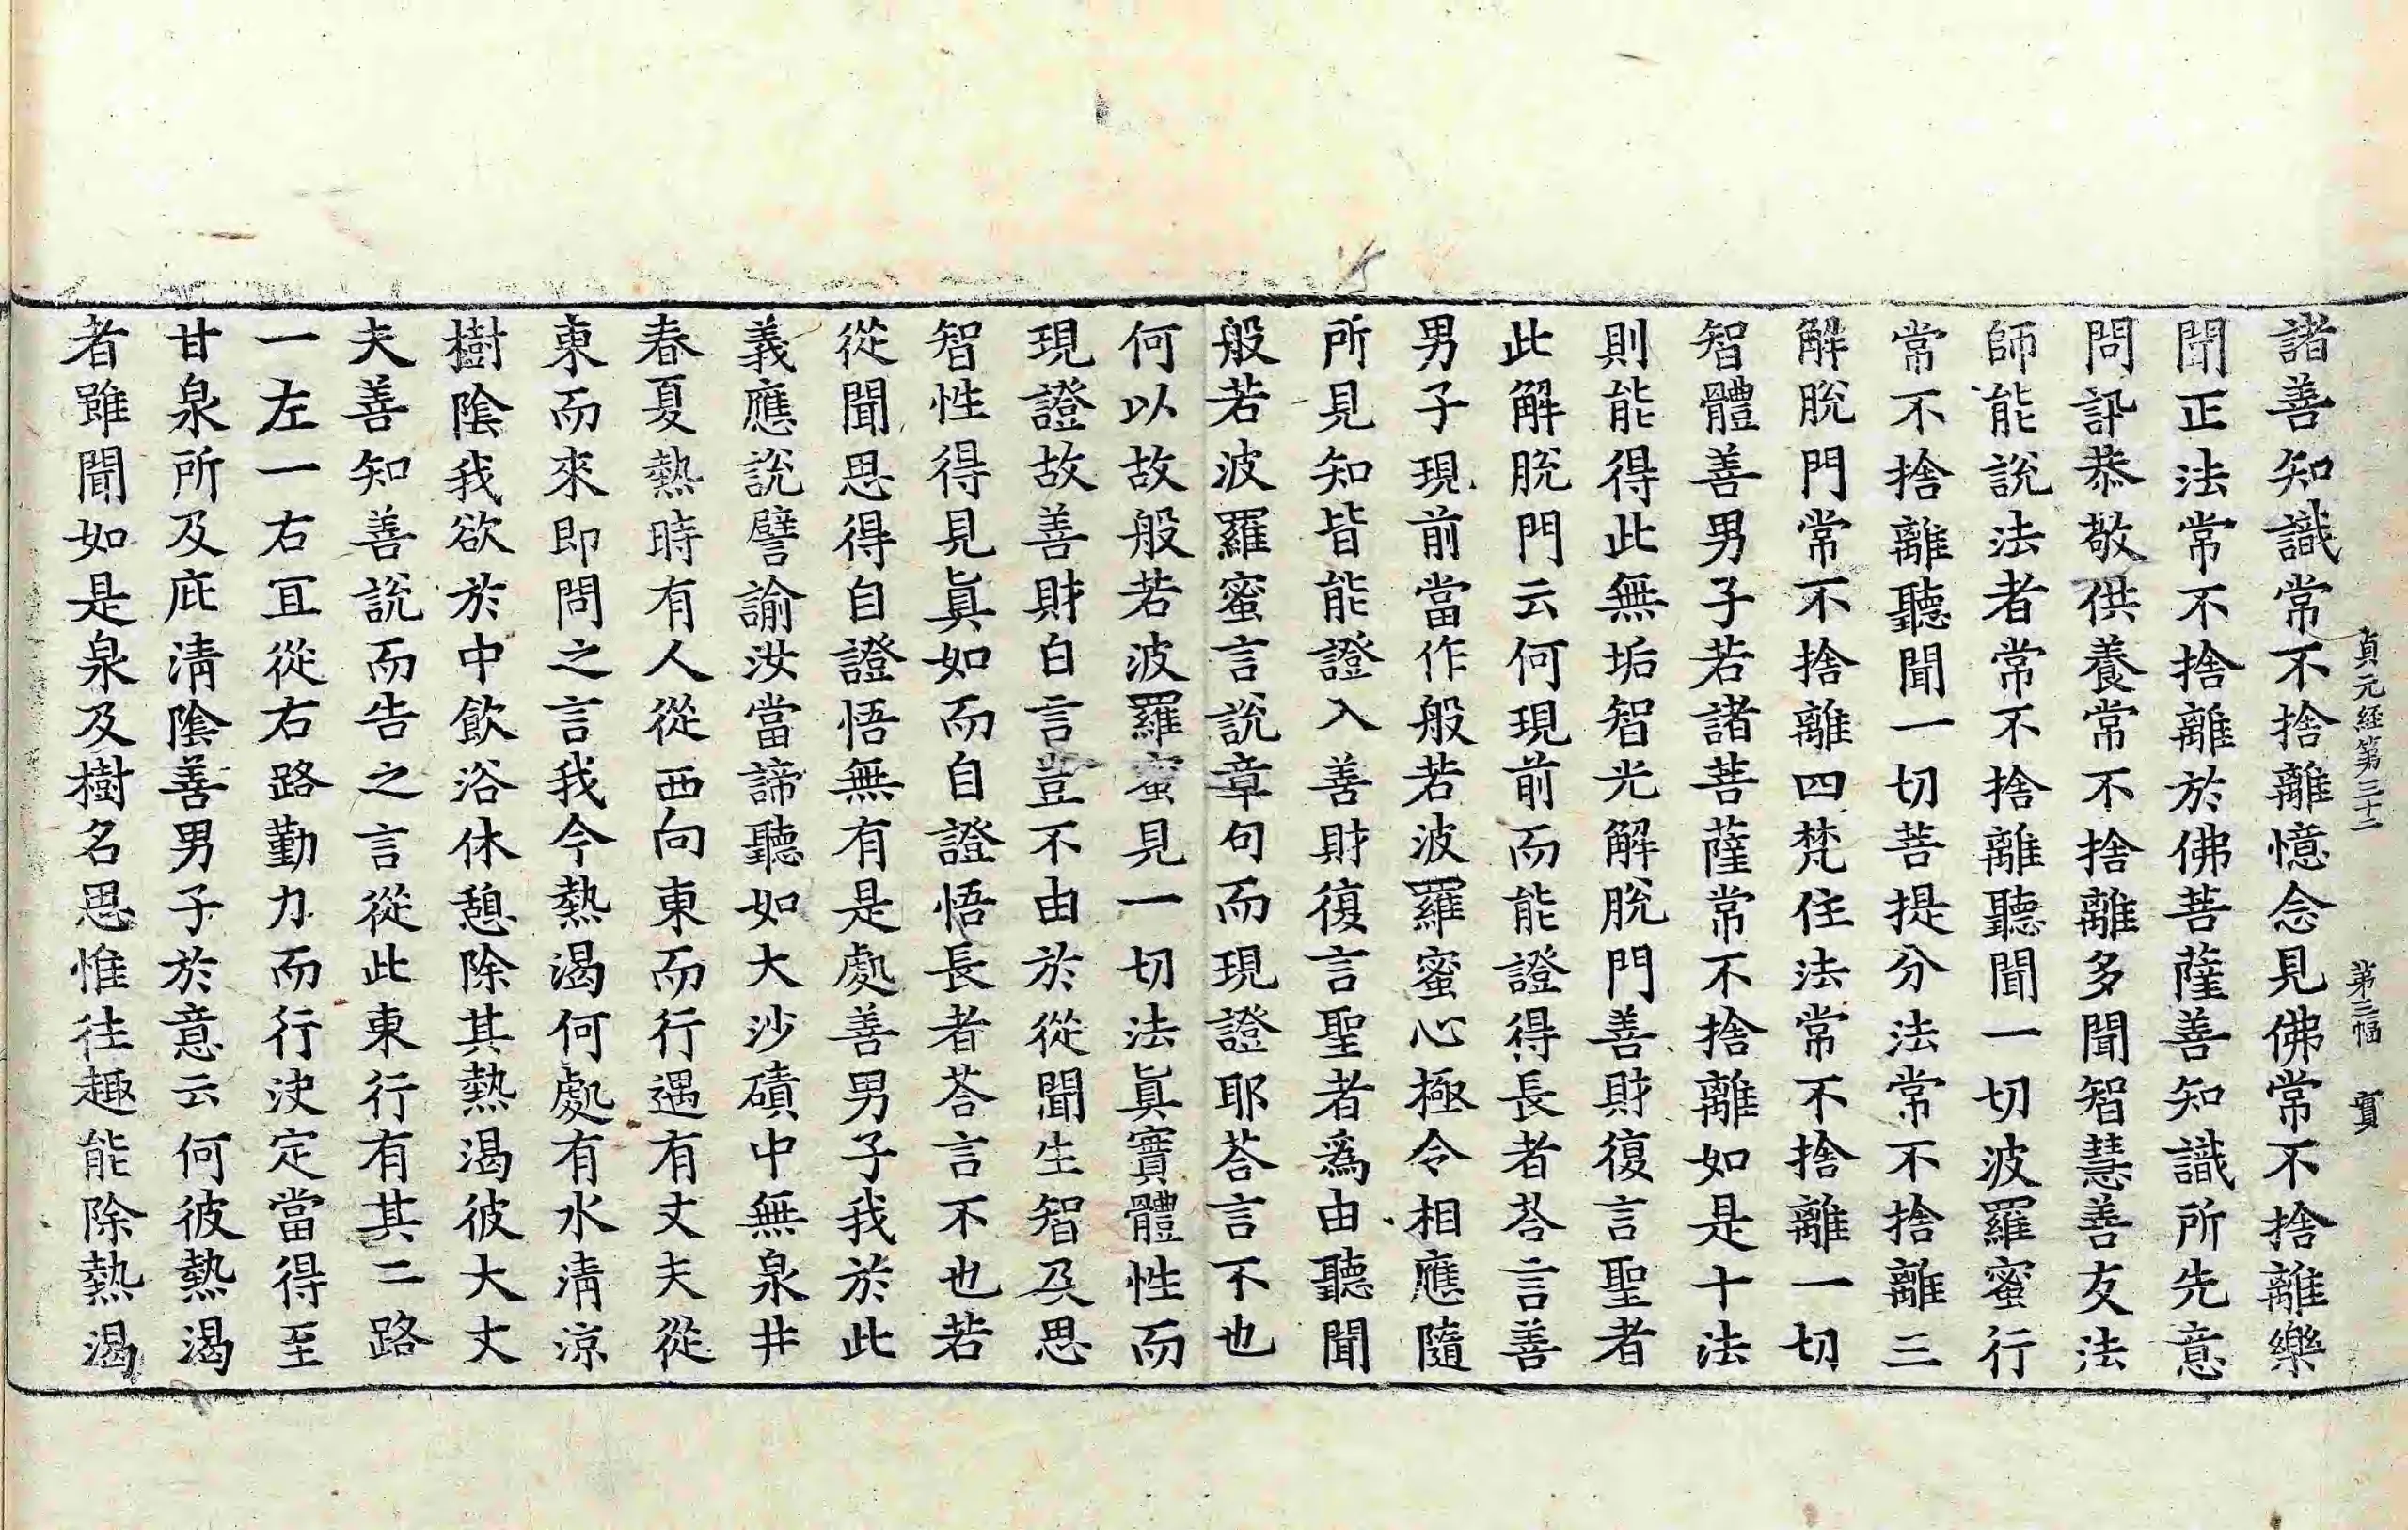 貞元経第三十二 第三幅 實
諸善知識常不捨離憶念見佛常不捨離樂
聞正法常不捨離於佛菩薩善知識所先意
問訊恭敬供養常不捨離多聞智慧善友法
師能說法者常不捨離聽聞一切波羅蜜行
常不捨離聽聞一切菩提分法常不捨離三
解脫門常不捨離四梵住法常不捨離一切
智體善男子若諸菩薩常不捨離如是十法
則能得此無垢智光解脫門善財復言聖者
此解脫門云何現前而能證得長者荅言善
男子現前當作般若波羅蜜心極令相應隨
所見知皆能證入善財復言聖者爲由聽聞
般若波羅蜜言說章句而現證耶荅言不也
何以故般若波羅蜜見一切法眞實體性而
現證故善財白言豈不由於從聞生智及思
智性得見眞如而自證悟長者荅言不也若
從聞思得自證悟無有是處善男子我於此
義應說譬諭汝當諦聽如大沙磧中無泉井
春夏熱時有人從西向東而行遇有丈夫從
東而來即問之言我今熱渴何處有水清涼
樹陰我欲於中飲浴休憩除其熱渴彼大丈
夫善知善說而告之言從此東行有其二路
一左一右宜從右路勤力而行決定當得至
甘泉所及庇清陰善男子於意云何彼熱渴
者雖聞如是泉及樹名思惟往趣能除熱渴